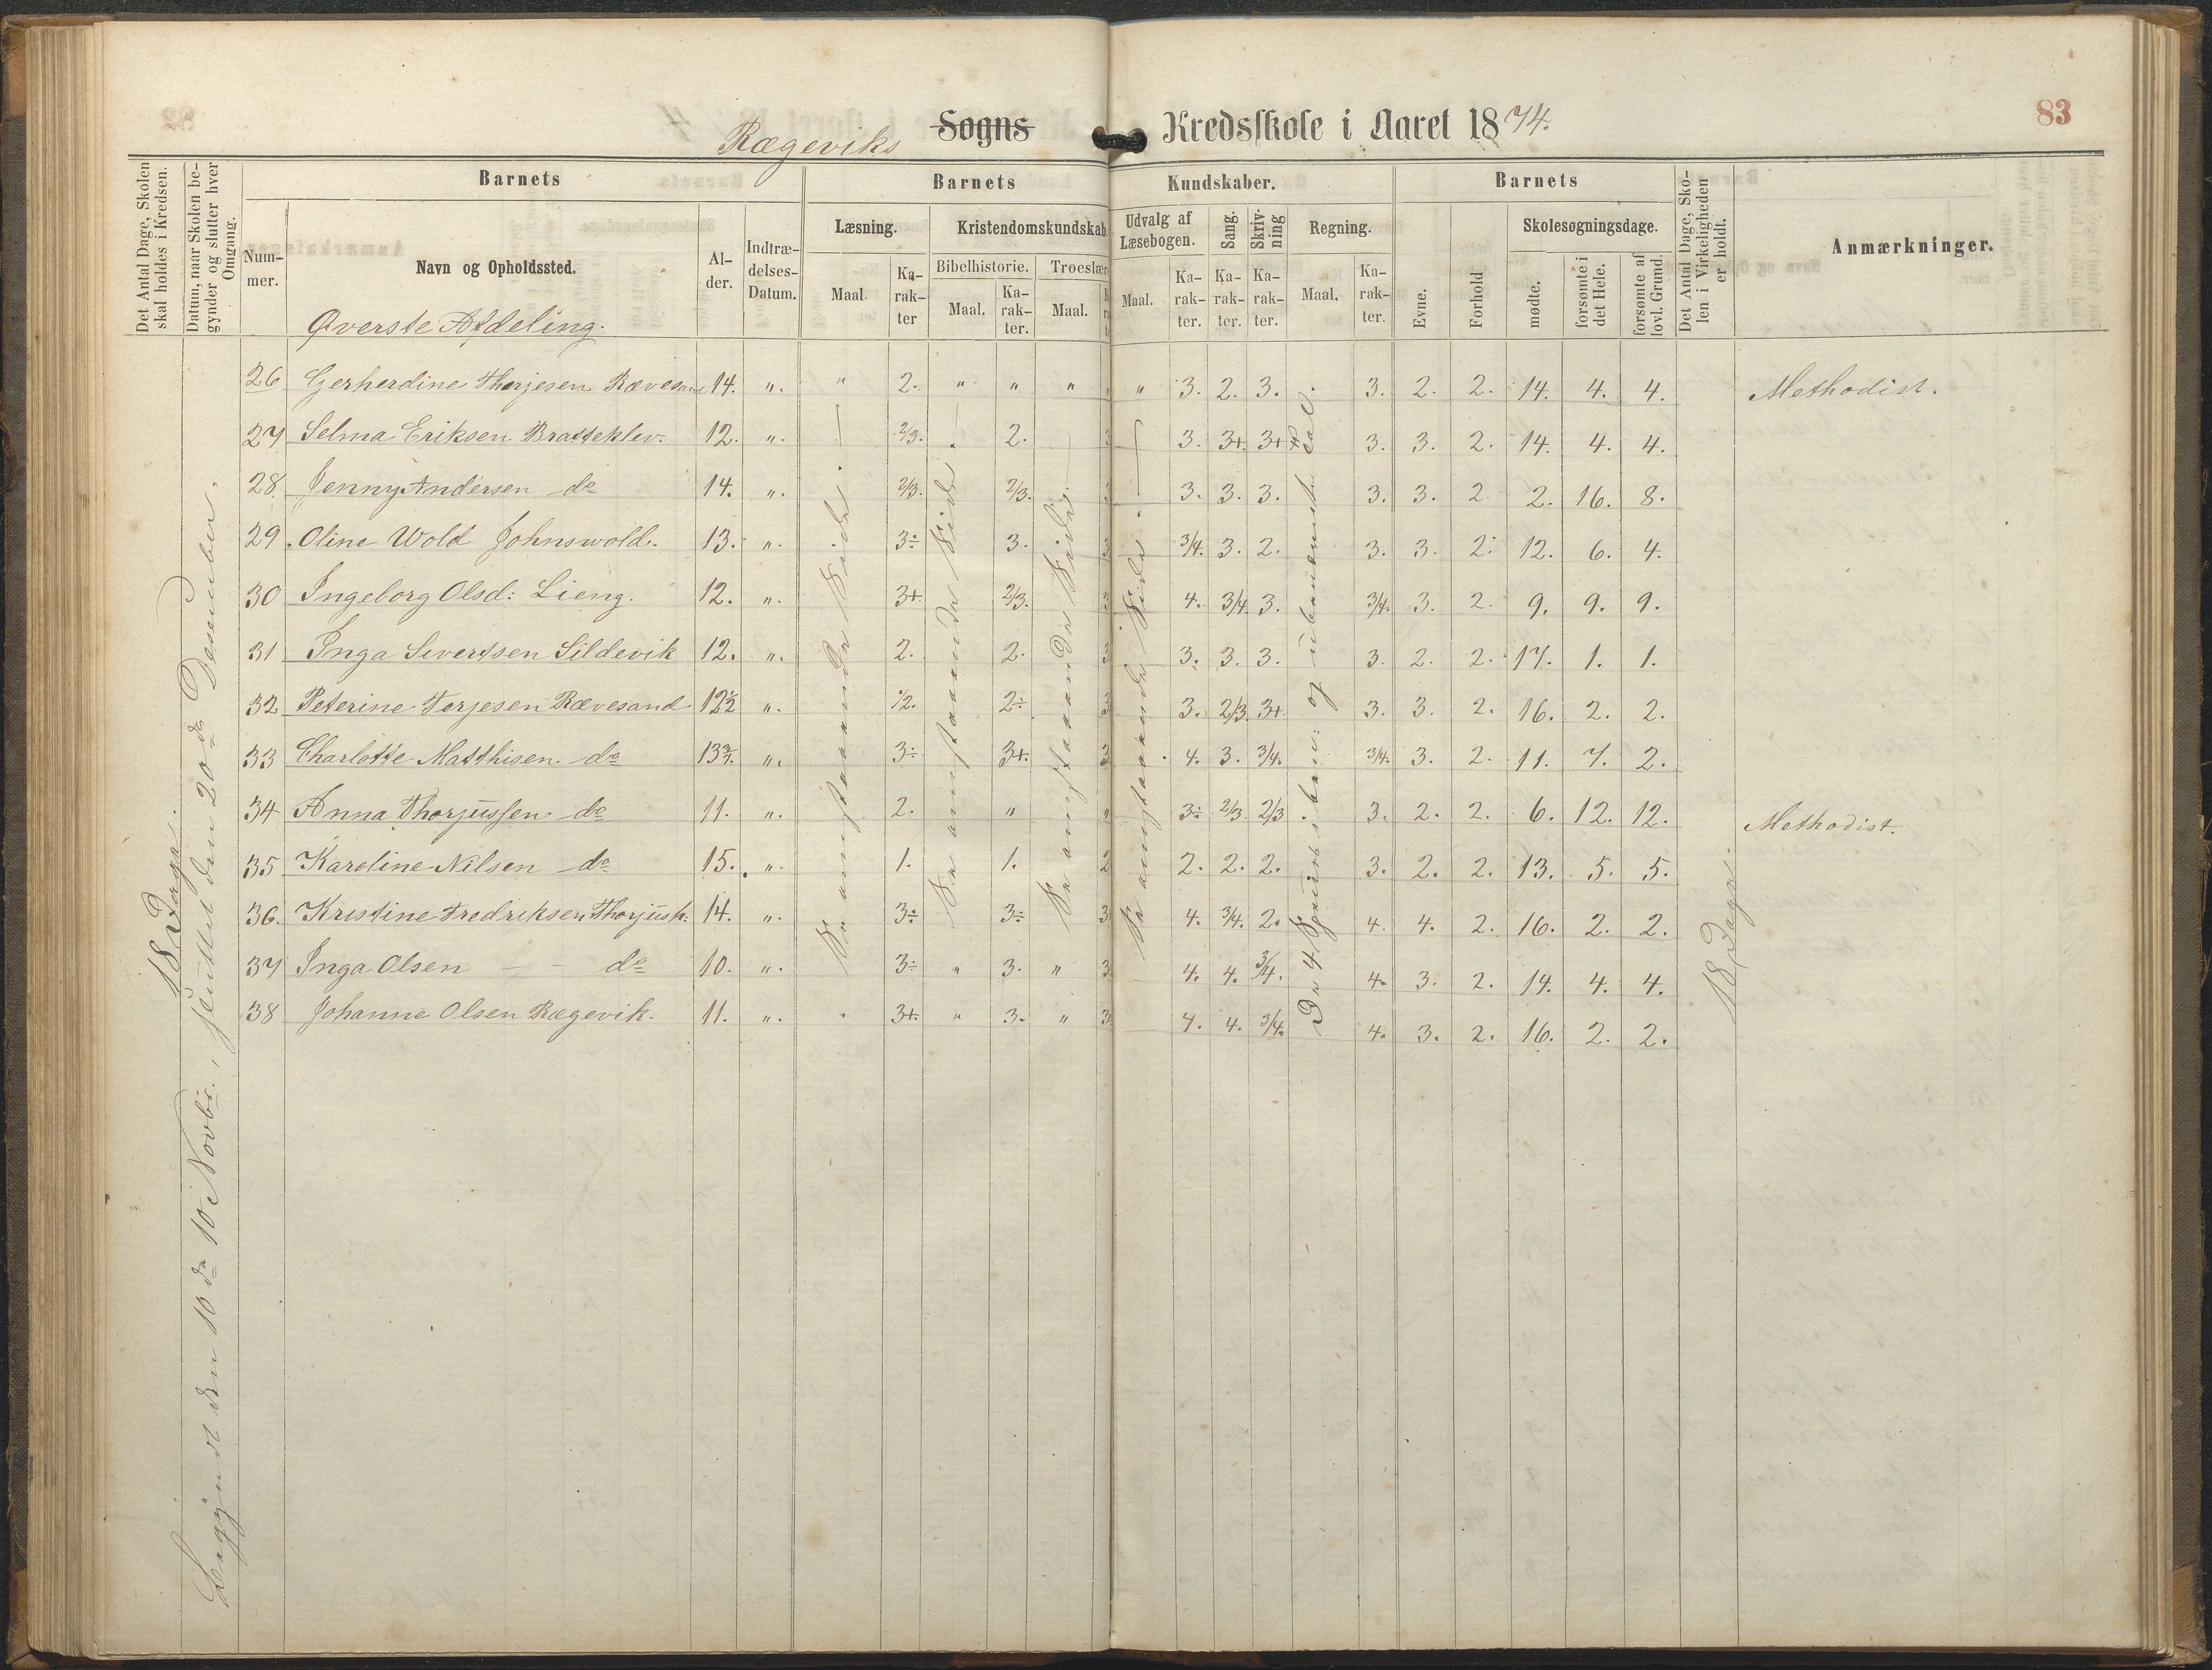 Rægeviks Sogns Kredsskole i Aaret 1874.
83
Det Antal Dage, Skolen skal holdes i Kredsen.
Datum, naar Skolen begynder og slutter hver Omgang.
Barnets
Barnets Kundskaber.
Barnets
Det Antal Dage, Skolen i Virkeligheden er holdt.
Anmærkninger.
Nummer.
Navn og Opholdssted.
Alder.
Indtrædelses-Datum.
Læsning.
Kristendomskundskab
Udvalg af Læsebogen.
Sang.
Skrivning
Regning.
Evne.
Forhold
Skolesøgningsdage.
Bibelhistorie.
Troeslær
mødte.
forsømte i det Hele.
forsømte af lovl. Grund.
Maal. Karakter Maal. Karakter. Maal. Maal. Karakter. Karakter. Karakter. Maal. Karakter.
Øverste Afdeling.
26 Gerherdine Therjesen Rævesand 14. " " 2. " " " " " 3. 2. 3. 3. 2. 2. 14. 4. 4. Methodist.
27 Selma Eriksen Bratteklev. 12. " 2/3. 2. 3 3. 3+. 3+ 3. 3. 2. 14. 4. 4.
28. Jenny Andersen do 14. " 2/3. 2/3. 3 3. 3. 3. 3. 3. 2. 2. 16. 8.
29. Oline Wold Johnswold. 13. " 3÷ 3. 3 3/4. 3. 2. 3. 3. 2. 12. 6. 4.
30 Ingeborg Olsd: Lieng. 12. " 3+ 2/3. 3 4. 3/4. 3. 3/4. 3. 2. 9. 9. 9.
31 Inga Sivertsen Sildevik 12. " 2. 2. 3 3. 3. 3. 3. 2. 2. 17. 1. 1.
32 Peterine Terjesen Rævesand 12½ " 1/2. 2÷ 3 3. 2/3. 3+. 3. 3. 2. 16. 2. 2.
33 Charlotte Matthisen do 13¾. " 3÷ 3+. 3 4. 3. 3/4. 3/4. 3. 2. 11. 7. 2.
34 Anna Thorjussen do 11. " 2. " " 3÷ 2/3. 2/3 3. 2. 2. 6. 12. 12. Methodist.
35 Karoline Nilsen do 15. " 1. 1. 2 2. 2. 2. 3. 2. 2. 13. 5. 5.
36. Kristine Fredriksen Thorjush: 14. " 3÷ 3÷ 3 4. 3/4. 2. 4. 4. 2. 16. 2. 2.
37 Inga Olsen – – do 10. " 3÷ " 3. " 3 4. 4. 3/4. 4. 3. 2. 14. 4. 4.
38 Johanne Olsen Rægevik. 11. " 3+. " 3. " 3 4. 4. 3/4. 4. 3. 2. 16. 2. 2.
18 Dage.
Begyndt den 10de Novbr., sluttet den 20de Desember.
Se omstaaende Side.
Se omstaaende Side.
Se omstaaende Side.
Se omstaaende Side.
De 4 Spesies i ben: og ubenævnte Tal.
18 Dage.